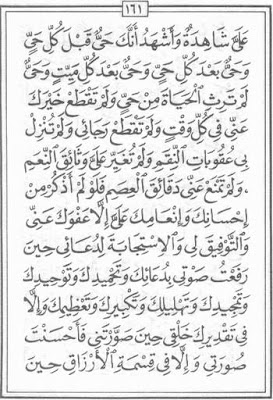 ١٦١
عَلَيَّ شَاهِدَةٌ وَأَشْهَدُ أَنَّكَ حَيٌّ قَبْلَ كُلِّ حَيٍّ
وَحَيٌّ بَعْدَ كُلِّ حَيٍّ وَحَيٌّ بَعْدَ كُلِّ مَيِّتٍ وَحَيٌّ
لَمْ تَرِثِ الْحَيَاةَ مِنْ حَيٍّ وَلَمْ تَقْطَعْ خَيْرَكَ
عَنِّي فِي كُلِّ وَقْتٍ وَلَمْ تَقْطَعْ رَجَائِي وَلَمْ تُنْزِلْ
بِي عُقُوبَاتِ النِّقَمِ وَلَمْ تُغَيِّرْ عَلَيَّ وَثَائِقَ النِّعَمِ
وَلَمْ تَمْنَعْ عَنِّي دَقَائِقَ الْعِصَمِ فَلَوْ لَمْ أَذْكُرْ مِنْ
إِحْسَانِكَ وَإِنْعَامِكَ عَلَيَّ إِلَّا عَفْوَكَ عَنِّي
وَالتَّوْفِيقَ لِي وَالْاِسْتِجَابَةَ لِدُعَائِي حِينَ
رَفَعْتُ صَوْتِي بِدُعَائِكَ وَتَحْمِيدِكَ وَتَوْحِيدِكَ
وَتَمْجِيدِكَ وَتَهْلِيلِكَ وَتَكْبِيرِكَ وَتَعْظِيمِكَ وَإِلَّا
فِي تَقْدِيرِكَ خَلْقِي حِينَ صَوَّرْتَنِي فَأَحْسَنْتَ
صُورَتِي وَإِلَّا فِي قِسْمَةِ الْأَرْزَاقِ حِينَ